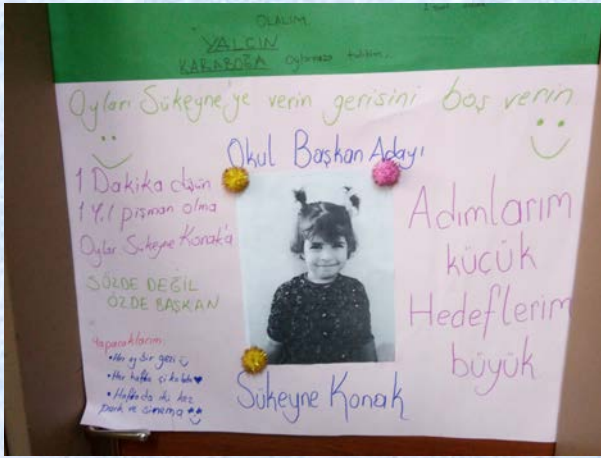 OLALIM.
YALÇIN
KARABOĞA Oylarınıza talibim.
Oyları Sükeyne'ye verin gerisini boş verin
Okul Başkan Adayı
1 Dakika düşün
1 Yıl pişman olma
Oylar Sükeyne Konak'a
SÖZDE DEĞİL
ÖZDE BAŞKAN
Yapacaklarım:
• Her ay bir gezi
• Her hafta çikolata
• Haftada iki kez
park ve sinema
Adımlarım
küçük
Hedeflerim
büyük
Sükeyne Konak